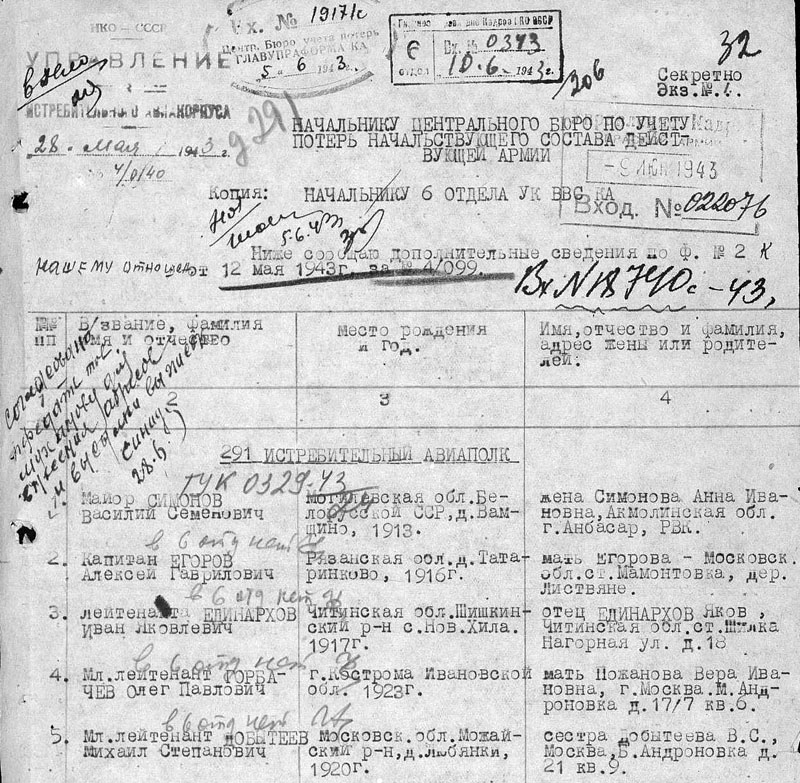 НКО — СССР
УПРАВЛЕНИЕ
ИСТРЕБИТЕЛЬНОГО АВИАКОРПУСА
28. мая 1943 г.
4/040
Вх. № 19171с
Центр. Бюро учета потерь
ГЛАВУПРАФОРМА КА
5 6 1943 г.
6
отдел
Вх. № 0373
10.6.1943г.
206
32
Секретно
Экз.№.1.
д 291
НАЧАЛЬНИКУ ЦЕНТРАЛЬНОГО БЮРО ПО УЧЕТУ
ПОТЕРЬ НАЧАЛЬСТВУЮЩЕГО СОСТАВА ДЕЙСТ-
ВУЮЩЕЙ АРМИИ
-9 ИЮН 1943
Вход. № 022076
Копия: НАЧАЛЬНИКУ 6 ОТДЕЛА УК ВВС КА
5.6.43
Ниже сообщаю дополнительные сведения по Ф. № 2 К
нашему отношен. от 12 мая 1943г. за № 4/099.
Вх N 18740с-43,
№№ пп
В/звание, фамилия
имя и отчество
Место рождения
и год.
Имя,отчество и фамилия,
адрес жены или родите-
лей.
2 3 4
28.6.
291 ИСТРЕБИТЕЛЬНЫЙ АВИАПОЛК
ГУК 0329-43
1. Майор СИМОНОВ
Василий Семенович
Могилевская обл.Бе-
лорусской ССР,д.Вам-
щино, 1913.
жена Симонова Анна Ива-
новна,Акмолинская обл.
г.Анбасар, РВК.
в 6 отд нет
2. Капитан ЕГОРОВ
Алексей Гаврилович
Рязанская обл.д.Тата-
ринково, 1916г.
мать Егорова - Московск.
обл.ст.Мамонтовка, дер.
Листвяне.
в 6 отд нет
3. лейтенанта ЕДИНАРХОВ
Иван Яковлевич
Читинская обл.Шишкин-
ский р-н с.Нов.Хила.
1917г.
отец ЕДИНАРХОВ Яков ,
Читинская обл.ст.Шилка
Нагорная ул. д.18
в 6 отд нет
4. Мл.лейтенант ГОРБА-
ЧЕВ Олег Павлович
г.Кострома Ивановской
обл. 1923г.
мать Пожанова Вера Ива-
новна, г.Москва.М.Анд-
роновка д.17/7 кв.6.
в 6 отд нет
5. Мл.лейтенант ДОБЫТЕЕВ
Михаил Степанович
Московск.обл.Можай-
ский р-н,д.Любянки,
1920г.
сестра Добытеева В.С.,
Москва,Б.Андроновка д.
21 кв.9.